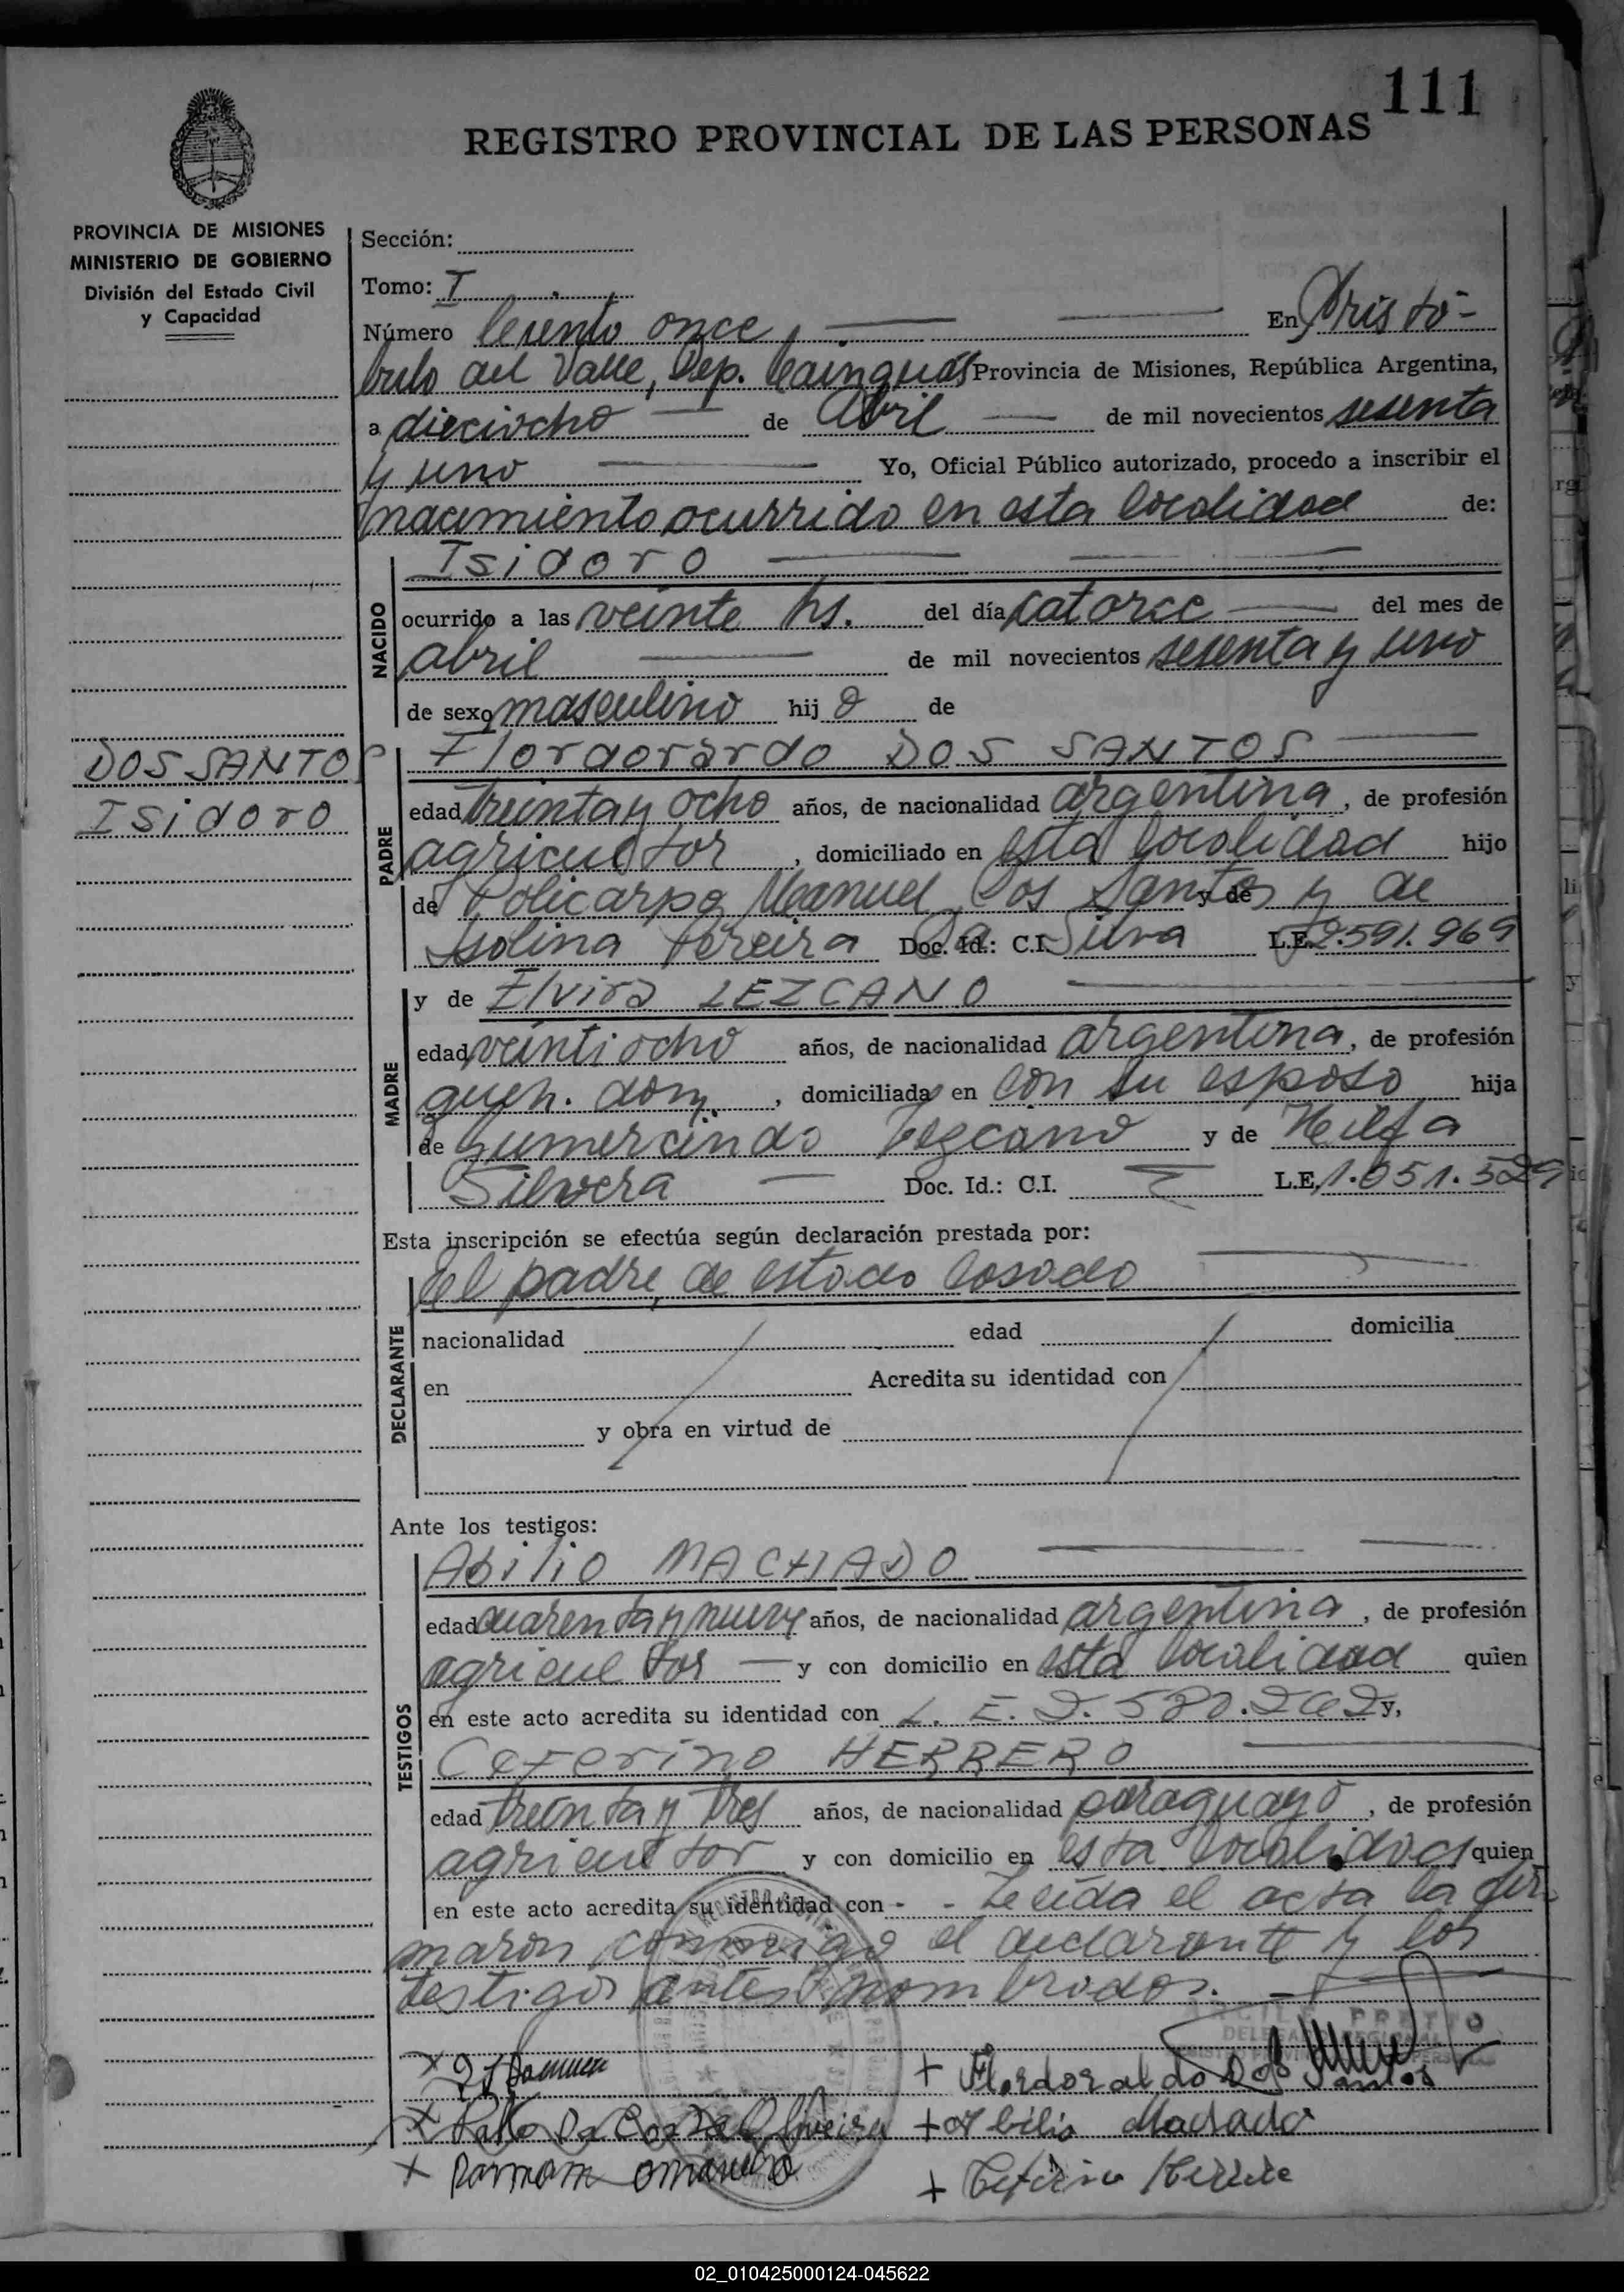 111
REGISTRO PROVINCIAL DE LAS PERSONAS
PROVINCIA DE MISIONES
MINISTERIO DE GOBIERNO
División del Estado Civil
y Capacidad
DOS SANTOS
Isidoro
Sección:
Tomo: I
Número Ciento once, En Aristó-
bulo del Valle, Dep. Cainguás Provincia de Misiones, República Argentina,
a dieciocho de Abril de mil novecientos sesenta
y uno Yo, Oficial Público autorizado, procedo a inscribir el
nacimiento ocurrido en esta localidad de:
NACIDO
Isidoro
ocurrido a las veinte hs. del día catorce del mes de
abril de mil novecientos sesenta y uno
de sexo masculino hijo de
PADRE
DOS SANTOS
edad treinta y ocho años, de nacionalidad argentina, de profesión
agricultor, domiciliado en esta localidad hijo
de Policarpo Manuel Dos Santos y de y de
Isolina Pereira Da Silva Doc. Id.: C.I. L.E. 7.591.969
MADRE
y de Elvira LEZCANO
edad veintiocho años, de nacionalidad argentina, de profesión
queh. dom., domiciliada en con su esposo hija
de Gumercindo Lezcano y de
Silvera Doc. Id.: C.I. L.E. 1.051.529
Esta inscripción se efectúa según declaración prestada por:
DECLARANTE
del padre, de estado casado
nacionalidad edad domicilia
en Acredita su identidad con
y obra en virtud de
Ante los testigos:
TESTIGOS
Abilio MACHADO
edad cuarenta y nueve años, de nacionalidad argentina, de profesión
agricultor y con domicilio en esta localidad quien
en este acto acredita su identidad con L. E. y,
Ceferino HERRERO
edad treinta y tres años, de nacionalidad paraguayo, de profesión
agricultor y con domicilio en esta localidad quien
en este acto acredita su identidad con - - Leída el acta la fir-
maron conmigo el declarante y los
testigos antes nombrados.
PRETTO
+ Flordoraldo Dos Santos
x Da Costa Oliveira + Abilio Machado
x Ramon
+ Ceferino
02_010425000124-045622